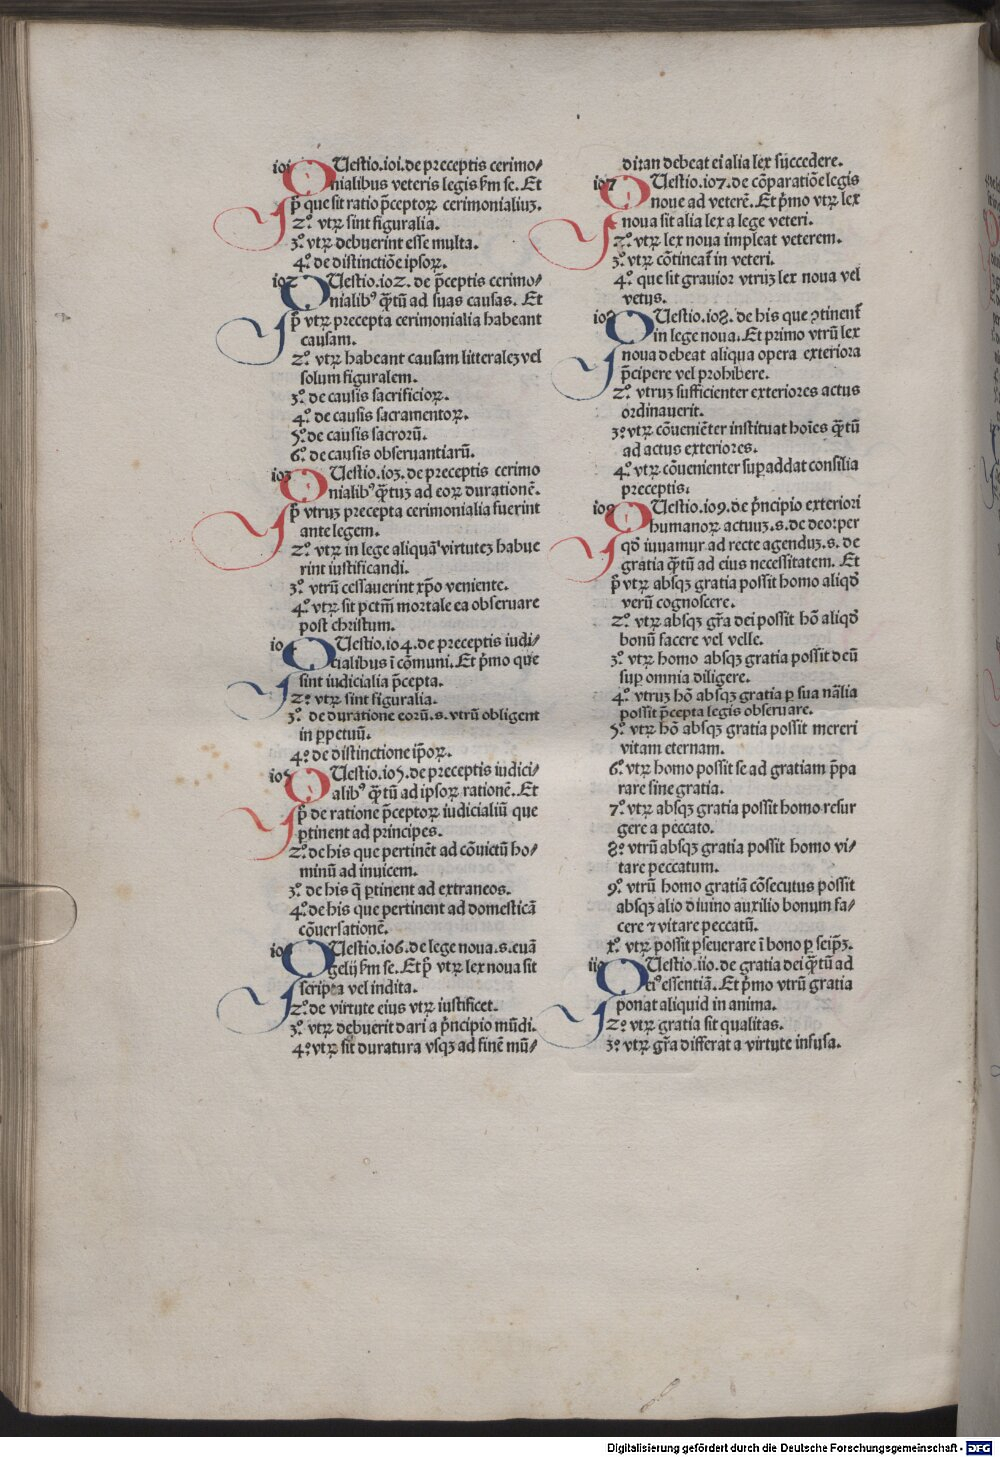 ioi QUestio.ioi.de preceptis cerimo/
nialibus veteris legis ẜm se. Et
p̄ que sit ratio p̄ceptoꝝ cerimonialiuꝫ.
2.º vtꝝ sint figuralia.
3.º vtꝝ debuerint esse multa.
4.º de distinctiōe ipsoꝝ.
io2 QUestio.io2. de p̄ceptis cerimo/
nialibꝰ q̄tū ad suas causas. Et
p̄ vtꝝ precepta cerimonialia habeant
causam.
2.º vtꝝ habeant causam litteraleꝫ vel
solum figuralem.
3.º de causis sacrificioꝝ.
4.º de causis sacramentoꝝ.
5.º de causis sacrorū.
6.º de causis obseruantiarū.
io3 QUestio.io3.de preceptis cerimo
nialibꝰ q̄tuꝫ ad eoꝝ durationē.
p̄ vtruꝫ precepta cerimonialia fuerint
ante legem.
2.º vtꝝ in lege aliquā virtuteꝫ habue
rint iustificandi.
3.º vtrū cessauerint xp̄o veniente.
4.º vtꝝ sit pctm̄ mortale ea obseruare
post christum.
io QUestio.io4.de preceptis iudi/
cialibus i cōmuni. Et p̄mo que
sint iudicialia p̄cepta.
2.º vtꝝ sint figuralia.
3.º de duratione eorū.s.vtrū obligent
in ꝑpetuū.
4.º de distinctione ip̄oꝝ.
io5 QUestio.io5.de preceptis iudici/
alibꝰ q̄tū ad ipsoꝝ rationē. Et
p̄ de ratione p̄ceptoꝝ iudicialiū que
ꝑtinent ad principes.
2.º de his que pertinēt ad cōuictū ho/
minū ad inuicem.
3.º de his q̄ ꝑtinent ad extraneos.
4.º de his que pertinent ad domesticā
cōuersationē.
io6 QUestio.io6.de lege noua.s.euā
gelij ẜm se. Et p̄ vtꝝ lex noua sit
scripta vel indita.
2.º de virtute eius vtꝝ iustificet.
3.º vtꝝ debuerit dari a p̄ncipio mūdi.
4.º vtꝝ sit duratura vsqꝫ ad finē mū/
di:an debeat ei alia lex succedere.
io7 QUestio.io7.de cōparatiōe legis
noue ad veterē. Et p̄mo vtꝝ lex
noua sit alia lex a lege veteri.
2.º vtꝝ lex noua impleat veterem.
3.º vtꝝ cōtineat̄ in veteri.
4.º que sit grauior vtruꝫ lex noua vel
vetus.
io8 QUestio.io8. de his que ꝯtinent̄
in lege noua. Et primo vtrū lex
noua debeat aliqua opera exteriora
p̄cipere vel prohibere.
2.º vtruꝫ sufficienter exteriores actus
ordinauerit.
3.º vtꝝ cōueniēter instituat hoīes q̄tū
ad actus exteriores.
4.º vtꝝ cōuenienter suꝑaddat consilia
preceptis.
io9 QUestio.io9.de p̄ncipio exteriori
humanoꝝ actuuꝫ.s.de deo:per
qd̄ iuuamur ad recte agenduꝫ.s.de
gratia q̄tū ad eius necessitatem. Et
p̄ vtꝝ absqꝫ gratia possit homo aliqd̄
verū cognoscere.
2.º vtꝝ absqꝫ gr̄a dei possit hō aliqd̄
bonū facere vel velle.
3.º vtꝝ homo absqꝫ gratia possit deū
suꝑ omnia diligere.
4.º vtruꝫ hō absqꝫ gratia ꝑ sua nālia
possit p̄cepta legis obseruare.
5.º vtꝝ hō absqꝫ gratia possit mereri
vitam eternam.
6.º vtꝝ homo possit se ad gratiam p̄pa
rare sine gratia.
7.º vtꝝ absqꝫ gratia possit homo resur
gere a peccato.
8.º vtrū absqꝫ gratia possit homo vi/
tare peccatum.
9.º vtrū homo gratiā cōsecutus possit
absqꝫ alio diuino auxilio bonum fa/
cere ⁊ vitare peccatū.
x.º vtꝝ possit ꝑseuerare ī bono ꝑ seip̄ꝫ.
iio QUestio.iio.de gratia dei q̄tū ad
eiꝰ essentiā. Et p̄mo vtrū gratia
ponat aliquid in anima.
2.º vtꝝ gratia sit qualitas.
3.º vtꝝ gr̄a differat a virtute infusa.
Digitalisierung gefördert durch die Deutsche Forschungsgemeinschaft - DFG